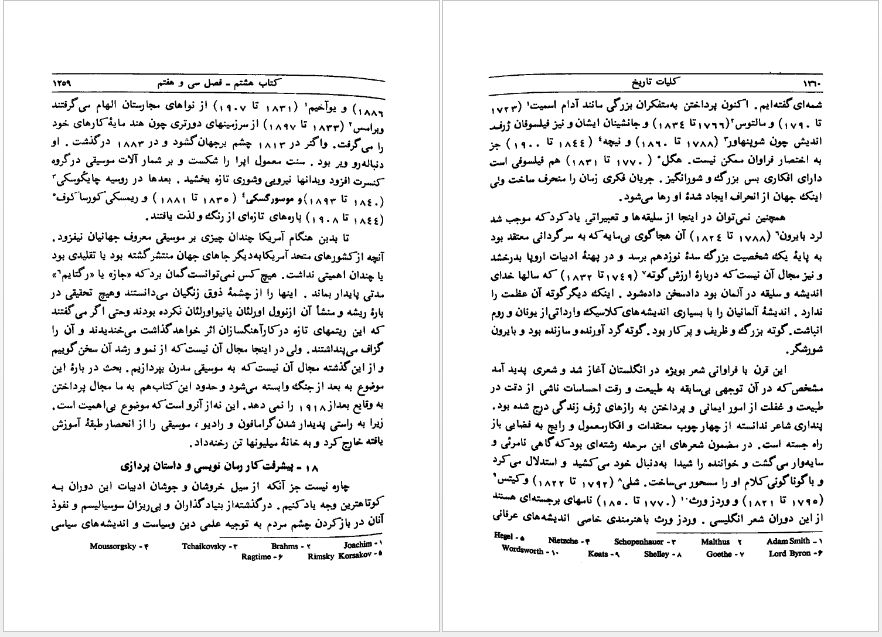 کتاب هشتم - فصل سی و هفتم ۱۲۵۹
۱۸۸۶) و یوآخیم۱ (۱۸۳۱ تا ۱۹۰۷) از نواهای مجارستان الهام می‌گرفتند
وبرامس۲ (۱۸۳۳ تا ۱۸۹۷) از سرزمینهای دورتری چون هند مایهٔ کارهای خود
را می‌گرفت. واگنر در ۱۸۱۳ چشم برجهان گشود و در ۱۸۸۳ درگذشت. او
دنباله‌رو وبر بود. سنت معمول اپرا را شکست و بر شمار آلات موسیقی درگروه
کنسرت افزود وبدانها نیرویی وشوری تازه بخشید. بعدها در روسیه چایکوسکی۳
(۱۸۴۰ تا ۱۸۹۳) و موسورگسکی۴ (۱۸۳۵ تا ۱۸۸۱) و ریمسکی کورساکوف۵
(۱۸۴۴ تا ۱۹۰۸) باره‌های تازه‌ای از رنگ و لذت یافتند.
تا بدین هنگام آمریکا چندان چیزی بر موسیقی معروف جهانیان نیفزود.
آنچه ازکشورهای متحد آمریکا به‌دیگر جاهای جهان منتشر گشته بود یا تقلیدی بود
یا چندان اهمیتی نداشت. هیچ کس نمی‌توانست گمان برد که «جاز» یا «رگتایم۶»
مدتی پایدار بماند. اینها را از چشمهٔ ذوق زنگیان می‌دانستند وهیچ تحقیقی در
بارهٔ ریشه و منشأ آن ازنوول اورلئان یانیواورلئان نکرده بودند وحتی اگر می‌گفتند
که این ریتمهای تازه در کار آهنگسازان اثر خواهد گذاشت می‌خندیدند و آن را
گزاف می‌پنداشتند. ولی در اینجا مجال آن نیست که از نمو و رشد آن سخن گوییم
و از این گذشته مجال آن نیست که به موسیقی مدرن بپردازیم. بحث در بارهٔ این
موضوع به بعد از جنگ وابسته می‌شود و حدود این کتاب هم به ما مجال پرداختن
به وقایع بعداز ۱۹۱۸ را نمی دهد. این نه‌از آنرو است که موضوع بی‌اهمیت است،
زیرا به راستی پدیدار شدن گرامافون و رادیو، موسیقی را از انحصار طبقهٔ آموزش
یافته خارج کرد و به خانهٔ میلیونها تن رخنه‌داد.
۱۸ - پیشرفت کار رمان نویسی و داستان پردازی
چاره نیست جز آنکه از سیل خروشان و جوشان ادبیات این دوران بــه
کوتاهترین وجه یاد کنیم. درگذشته‌از بنیادگذاران و پی‌ریزان سوسیالیسم و نفوذ
آنان در بازکردن چشم مردم به توجیه علمی دین وسیاست و اندیشه‌های سیاسی
۱- Joachim ۲- Brahms ۳- Tchaikovsky ۴- Moussorgsky
۵- Rimsky Korsakov ۶- Ragtime
۱۲۶۰ کلیات تاریخ
شمه‌ای گفته‌ایم. اکنون پرداختن به‌متفکران بزرگی مانند آدام اسمیت۱ (۱۷۲۳
تا ۱۷۹۰) و مالتوس۲ (۱۷۶۶ تا ۱۸۳۴) و جانشینان ایشان و نیز فیلسوفان ژرف
اندیش چون شوپنهاور۳ (۱۷۸۸ تا ۱۸۹۰) و نیچه۴ (۱۸۴۴ تا ۱۹۰۰) جز
به اختصار فراوان ممکن نیست. هگل۵ (۱۷۷۰ تا ۱۸۳۱) هم فیلسوفی است
دارای افکاری بس بزرگ و شورانگیز. جریان فکری زمان را منحرف ساخت ولی
اینک جهان از انحراف ایجاد شدهٔ او رها می‌شود.
همچنین نمی‌توان در اینجا از سلیقه‌ها و تعبیراتی یاد کرد که موجب شد
لرد بایرون۶ (۱۷۸۸ تا ۱۸۲۴) آن هجاگوی بی‌مایه که به سرگردانی معتقد بود
به پایهٔ یک شخصیت بزرگ سدهٔ نوزدهم برسد و در پهنهٔ ادبیات اروپا بدرخشد
و نیز مجال آن نیست که دربارهٔ ارزش گوته۷ (۱۷۴۹ تا ۱۸۳۲) که سالها خدای
اندیشه و سلیقه در آلمان بود دادسخن داده‌شود. اینک دیگر گوته آن عظمت را
ندارد. اندیشهٔ آلمانیان را با بسیاری اندیشه‌های کلاسیک وارداتی از یونان و روم
انباشت. گوته بزرگ و ظریف و پرکار بود. گوته گرد آورنده و سازنده بود و بایرون
شورشگر.
این قرن با فراوانی شعر بویژه در انگلستان آغاز شد و شعری پدید آمد
مشخص که در آن توجهی بی‌سابقه به طبیعت و رقت احساسات ناشی از دقت در
طبیعت و غفلت از امور ایمانی و پرداختن به رازهای ژرف زندگی درج شده بود.
پنداری شاعر ندانسته از چهارچوب معتقدات و افکار معمول و رایج به فضایی باز
راه جسته است. در مضمون شعرهای این مرحله رشته‌ای بود که گاهی نامرئی و
سایه‌وار می‌گشت و خواننده را شیدا به‌دنبال خود می‌کشید و استدلال می‌کرد
و با گوناگونی کلام او را مسحور می‌ساخت. شلی۸ (۱۷۹۲ تا ۱۸۲۲) و کیتس۹
(۱۷۹۵ تا ۱۸۲۱) و وردز ورث۱۰ (۱۷۷۰ تا ۱۸۵۰) نامهای برجسته‌ای هستند
از این دوران شعر انگلیسی. وردز ورث باهنرمندی خاصی اندیشه‌های عرفانی
۱- Adam Smith ۲ Malthus ۳- Schopenhauer ۴- Nietzsche ۵- Hegel
۶- Lord Byron ۷- Goethe ۸- Shelley ۹- Keats ۱۰- Wordsworth